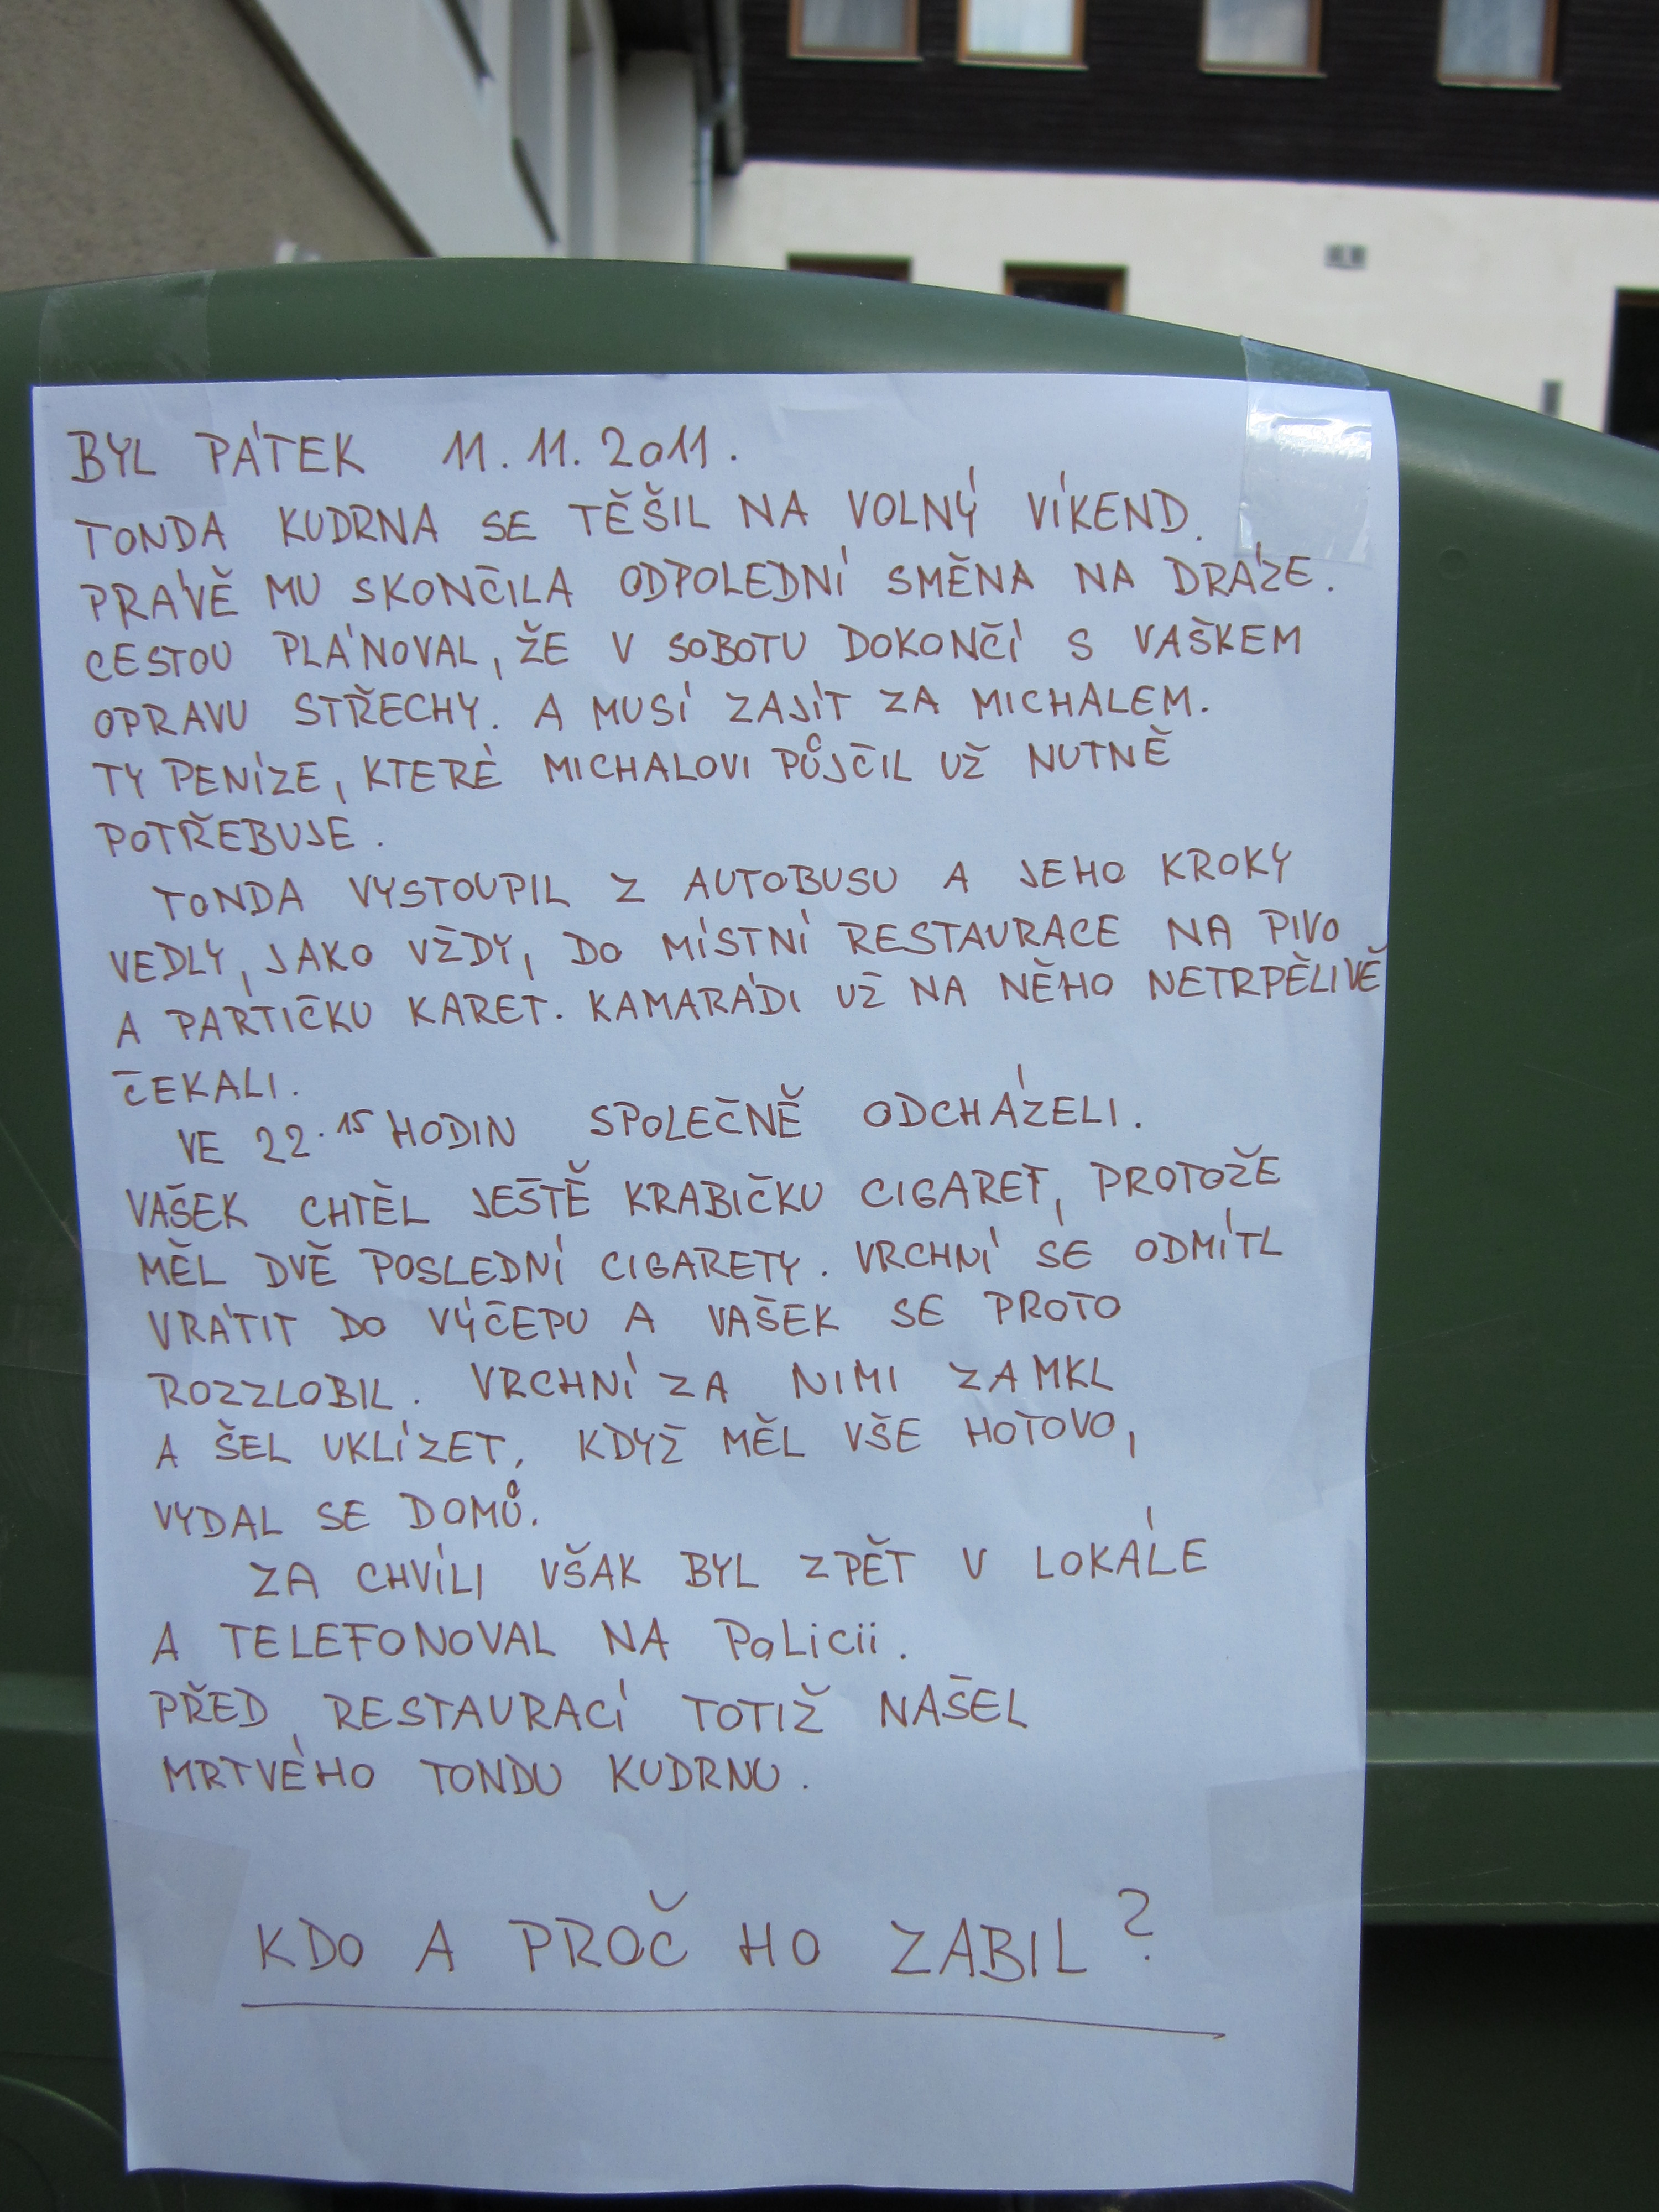 BYL PÁTEK 11.11.2011.
TONDA KUDRNA SE TĚŠIL NA VOLNÝ VÍKEND.
PRÁVĚ MU SKONČILA ODPOLEDNÍ SMĚNA NA DRÁZE.
CESTOU PLÁNOVAL, ŽE V SOBOTU DOKONČÍ S VAŠKEM
OPRAVU STŘECHY. A MUSÍ ZAJÍT ZA MICHALEM.
TY PENÍZE, KTERÉ MICHALOVI PŮJČIL UŽ NUTNĚ
POTŘEBUJE.
TONDA VYSTOUPIL Z AUTOBUSU A JEHO KROKY
VEDLY, JAKO VŽDY, DO MÍSTNÍ RESTAURACE NA PIVO
A PARTIČKU KARET. KAMARÁDI UŽ NA NĚHO NETRPĚLIVĚ
ČEKALI.
VE 22.15 HODIN SPOLEČNĚ ODCHÁZELI.
VAŠEK CHTĚL JEŠTĚ KRABIČKU CIGARET, PROTOŽE
MĚL DVĚ POSLEDNÍ CIGARETY. VRCHNÍ SE ODMÍTL
VRÁTIT DO VÝČEPU A VAŠEK SE PROTO
ROZZLOBIL. VRCHNÍ ZA NIMI ZAMKL
A ŠEL UKLÍZET, KDYŽ MĚL VŠE HOTOVO,
VYDAL SE DOMŮ.
ZA CHVÍLI VŠAK BYL ZPĚT V LOKÁLE
A TELEFONOVAL NA PoLicii.
PŘED RESTAURACÍ TOTIŽ NAŠEL
MRTVÉHO TONDU KUDRNU.
KDO A PROČ HO ZABIL?